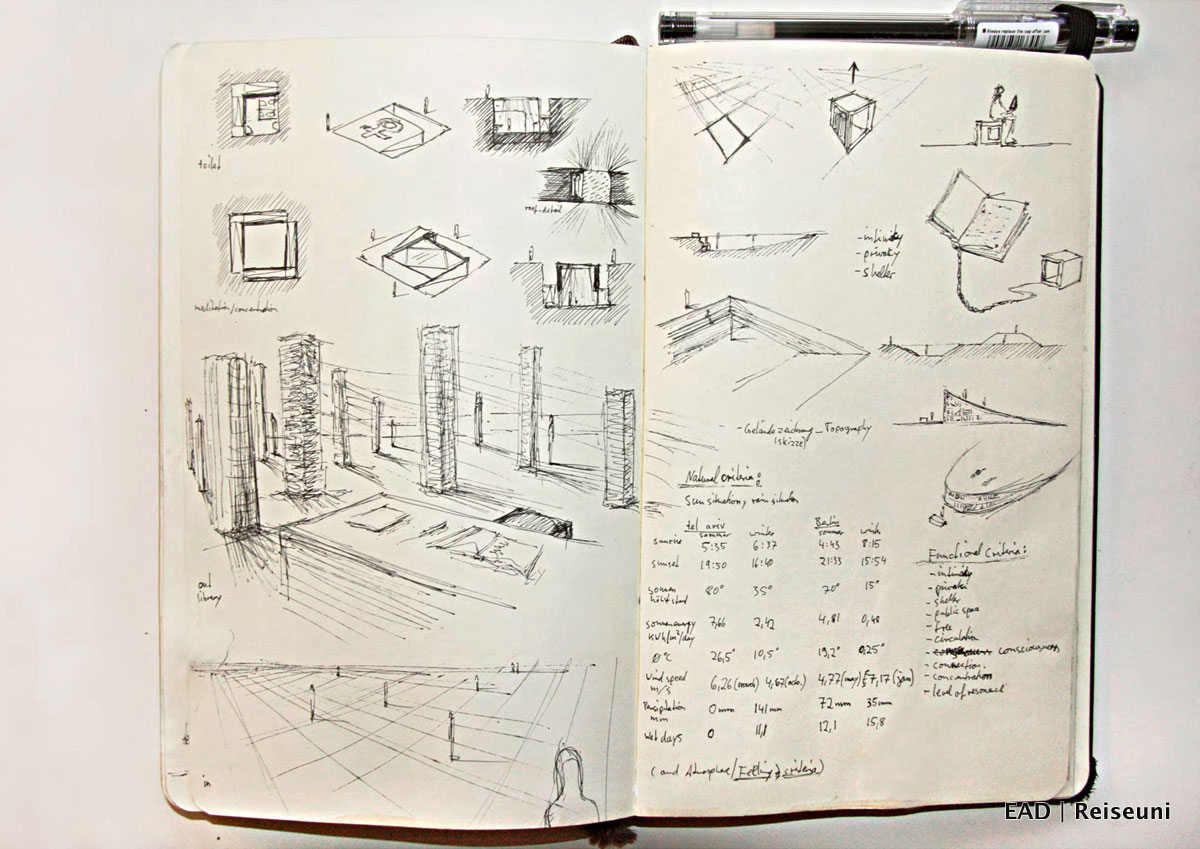 Always replace the cap after use
toilet
roof-detail
meditation/concentration
out
library
in
- intimity
- privaty
- shelter
- Geländezeichnung _ Topography
(skizze)
Natural criteria:
Sun situation, rain situation
tel aviv Berlin
sommer winter sommer winter
sunrise 5:35 6:37 4:43 8:15
sunset 19:50 16:40 21:33 15:54
sonnen 80° 35° 70° 15°
höhlstand
sonnenenergy 7,66 2,42 4,81 0,48
KWh/m²/day
ø °C 26,5° 10,5° 19,2° 0,25°
Wind speed 6,26 (march) 4,67 (octo.) 4,77 (may) 7,17 (jan)
m/s
Percipitation 0mm 141mm 72mm 35mm
mm
Wet days 0 11,1 12,1 15,8
(and Atmosphere/Feeling criteria)
Functional Criteria:
- intimity
- privaty
- shelter
- public space
- free
- circulation
- consciousness
- connection.
- concentration
- level of resonace
EAD | Reiseuni